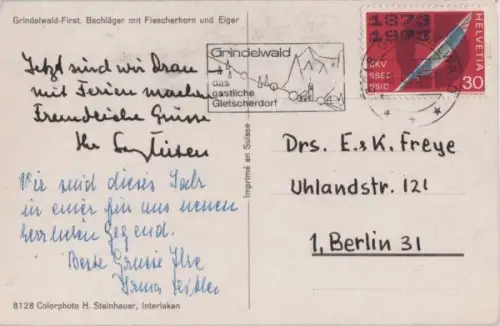 Grindelwald-First. Bachläger mit Fiescherhorn und Eiger
Jetzt sind wir dran
mit Ferien machen
Freundliche Grüsse
Ihr
Wir sind dieses Jahr
in einer für uns neuen
herrlichen Gegend.
Beste Grüsse Ihre
8128 Colorphoto H. Steinhauer, Interlaken
Imprimé en Suisse
Grindelwald
das
gastliche
Gletscherdorf
1873
1973
SKV
SSEC
SSIC
HELVETIA
30
Drs. E. & K. Freye
Uhlandstr. 121
1, Berlin 31